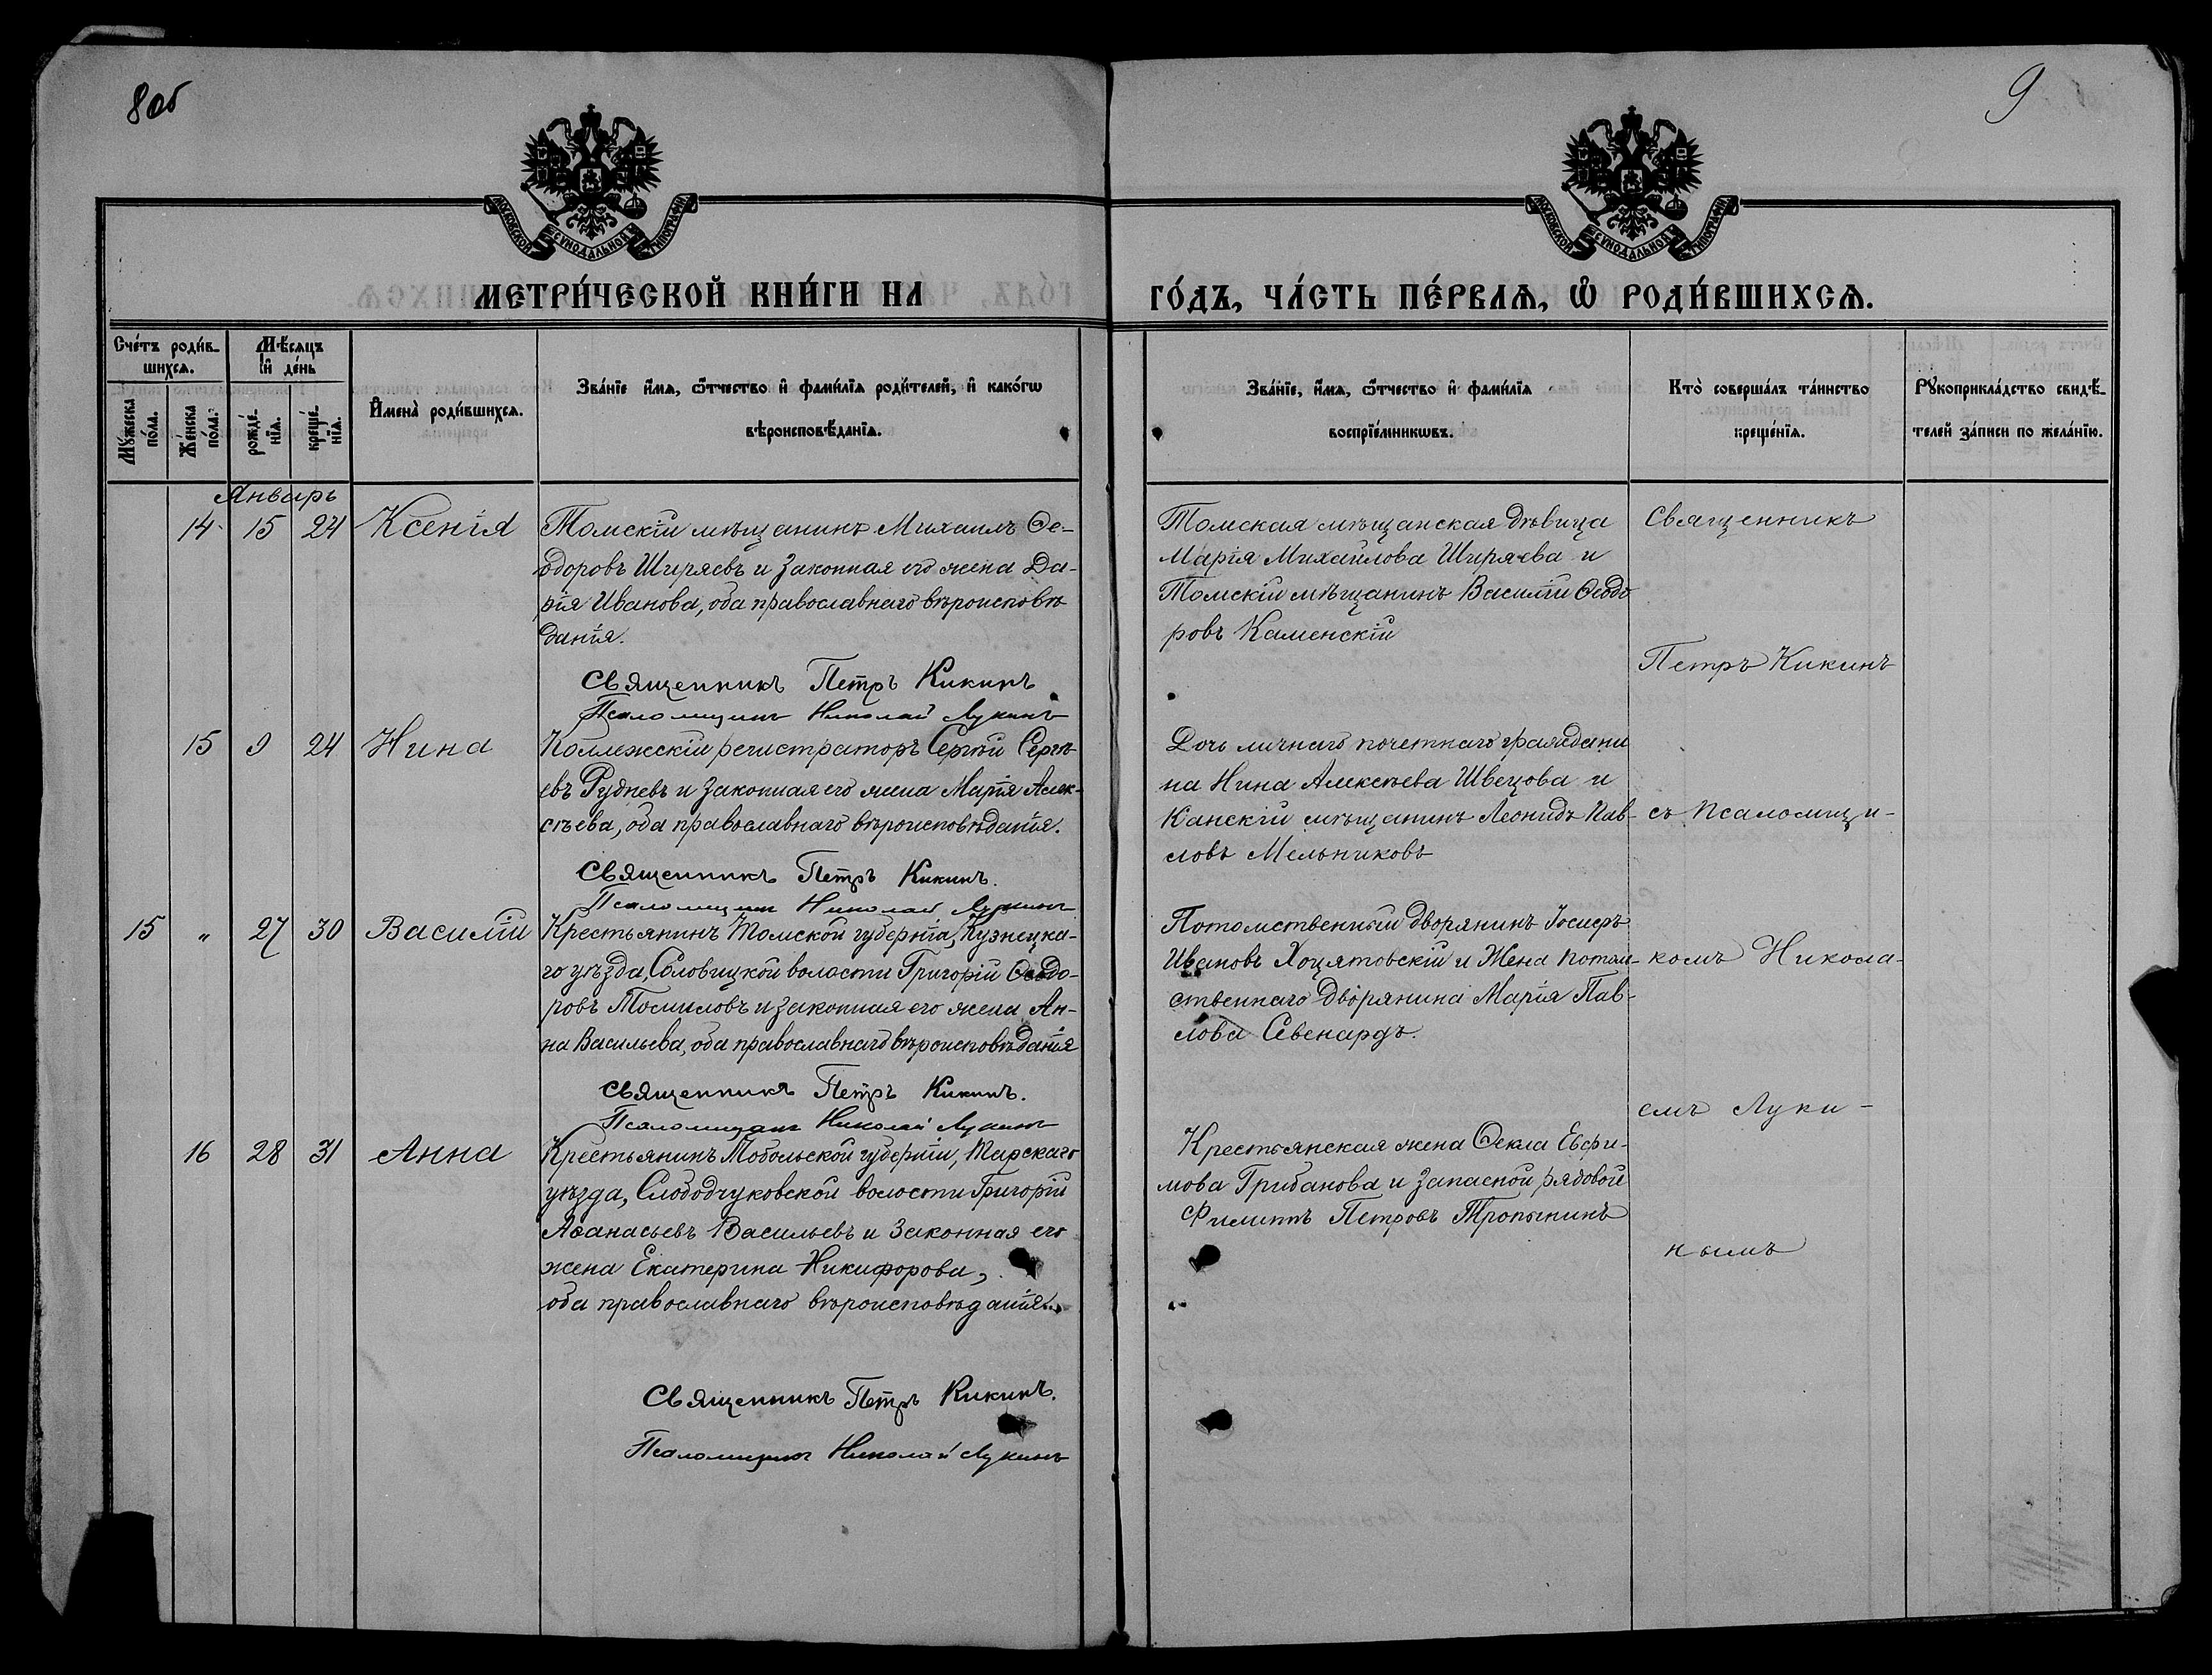 8об
9
МОСКОВСКОЙ СУНОДАЛЬНОЙ ТИПОГРАФІИ
МОСКОВСКОЙ СУНОДАЛЬНОЙ ТИПОГРАФІИ
МЕТРИ́ЧЕСКОЙ КНИ́ГИ НА
ГО́ДЪ, ЧА́СТЬ ПЕ́РВАѦ, Ѡ҆ РОДИ́ВШИХСѦ.
Сче́тъ роди́в-
шихсѧ.
Мѣ́сѧцъ
и҆ де́нь
Мꙋ́жеска
по́ла.
Же́нска
по́ла.
рожде́-
нїѧ.
креще́-
нїѧ.
И҆мена̀ роди́вшихсѧ.
Зва́нїе и҆́мѧ, ѻ҆́тчество и҆ фами́лїѧ роди́телей, и҆ како́гѡ
вѣроисповѣ́данїѧ.
Зва́нїе, и҆́мѧ, ѻ҆́тчество и҆ фами́лїѧ
воспрїе́мникѡвъ.
Кто̀ соверша́лъ та́инство
креще́нїѧ.
Рꙋкоприкла́дство свидѣ́-
телей за́писи по жела́нїю.
Январь
14 15 24 Ксенія
Томскій мѣщанинъ Михаилъ Ѳе-
одоровъ Ширяевъ и законная его жена Да-
рія Иванова, оба православнаго вѣроисповѣ
данія.
Священникъ Петръ Кикинъ
Псаломщикъ Николай Лукинъ
Томская мѣщанская дѣвица
Марія Михайлова Ширяева и
Томскій мѣщанинъ Василій Ѳеодо
ровъ Каменскій
Священникъ
Петръ Кикинъ
15 9 24 Нина
Коллежскій регистраторъ Сергѣй Сергѣ-
евъ Рудневъ и законная его жена Марія Алек-
сѣева, оба православнаго вѣроисповѣданія.
Священникъ Петръ Кикинъ.
Псаломщикъ Николай Лукинъ
Дочь личнаго почетнаго граждани
на Нина Алексѣева Швецова и
Канскій мѣщанинъ Леонидъ Пав-
ловъ Мельниковъ
съ псаломщи-
15 „ 27 30 Василій
Крестьянинъ Томской губерніи, Кузнецка-
го уѣзда, Словицкой волости Григорій Ѳеодо-
ровъ Томиловъ и законная его жена Ан-
на Васильева, оба православнаго вѣроисповѣданія
Священникъ Петръ Кикинъ.
Псаломщикъ Николай Лукинъ
Потомственный дворянинъ Іосифъ
Ивановъ Хоцятовскій и Жена потом-
ственнаго дворянина Марія Пав-
лова Севенардъ.
комъ Никола-
емъ Луки-
16 28 31 Анна
Крестьянинъ Тобольской губерніи, Тарскаго
уѣзда, Слободчуковской волости Григорій
Аѳанасьевъ Васильевъ и законная его
жена Екатерина Никифорова,
оба православнаго вѣроисповѣданія.
Священникъ Петръ Кикинъ.
Псаломщикъ Николай Лукинъ
Крестьянская жена Ѳекла Евфи-
мова Грибанова и запасной рядовой
Филиппъ Петровъ Тропынинъ
нымъ